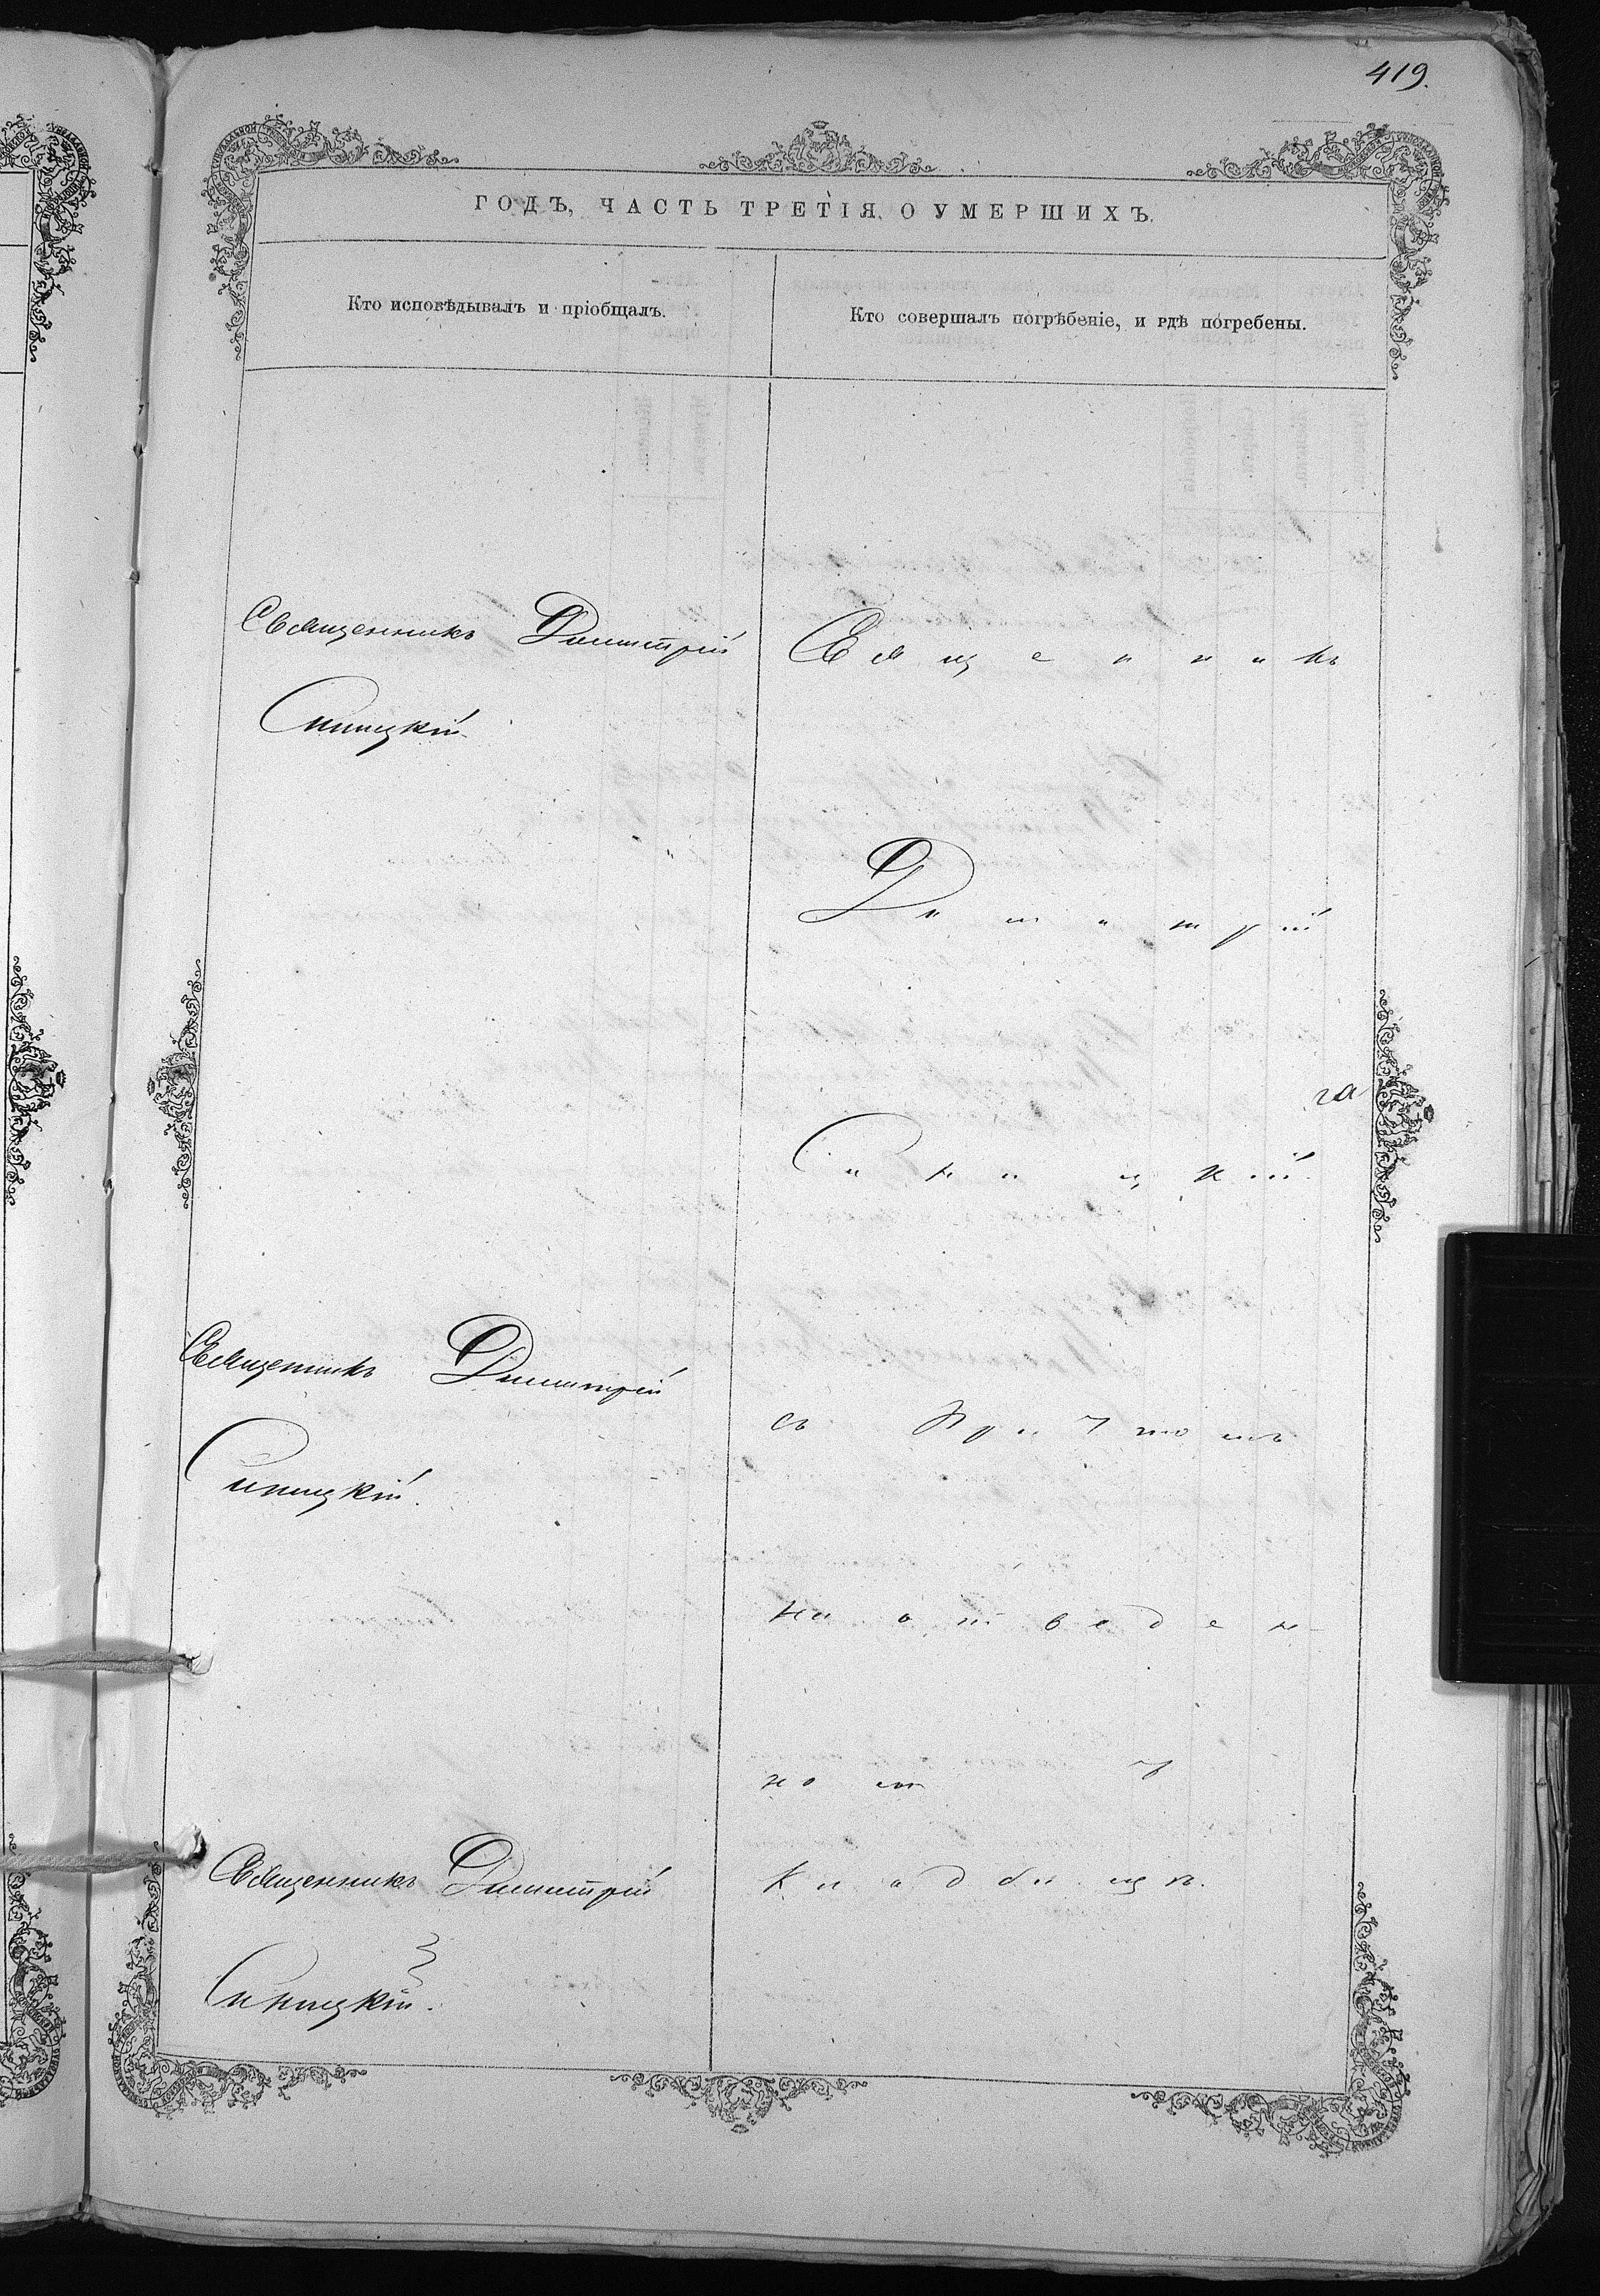 419.
ГОДЪ, ЧАСТЬ ТРЕТІЯ, О УМЕРШИХЪ.
Кто исповѣдывалъ и пріобщалъ.
Кто совершалъ погрѣбеніе, и гдѣ погребены.
Священникъ Димитрій
Синицкій
Священникъ Димитрій
Синицкій.
Священникъ Димитрій
Синицкій.
Священникъ
Димитрій
Синицкій.
съ Причтомъ
на отведен-
номъ
кладбищѣ.